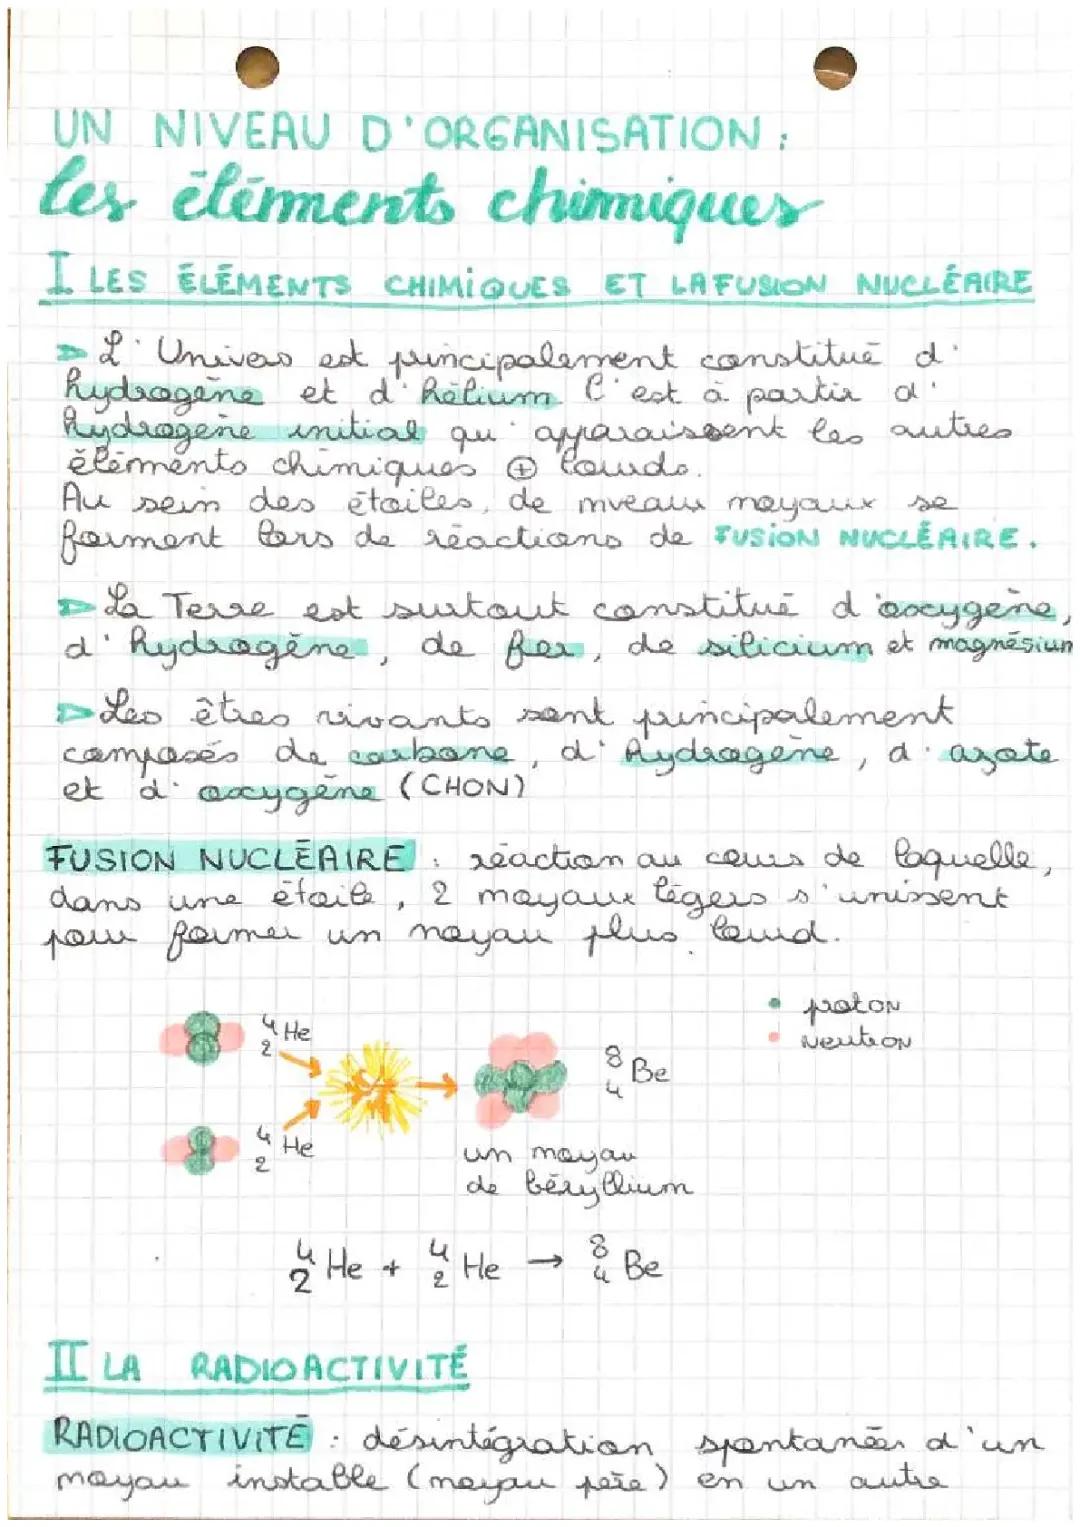 UN NIVEAU D'ORGANISATION :
les éléments chimiques
I LES ÉLÉMENTS CHIMIQUES ET LA FUSION NUCLÉAIRE
▷ L'Univers est principalement constitué d'
hydrogène et d'hélium. C'est à partir d'
hydrogène initial qu'apparaissent les autres
éléments chimiques ⊕ lourds.
Au sein des étoiles, de nveaux noyaux se
forment lors de réactions de FUSION NUCLÉAIRE.
▷ La Terre est surtout constitué d'oxygène,
d'hydrogène, de fer, de silicium et magnésium
▷ Les êtres vivants sont principalement
composés de carbone, d'hydrogène, d'azote
et d'oxygène (CHON)
FUSION NUCLÉAIRE : réaction au cours de laquelle,
dans une étoile, 2 noyaux légers s'unissent
pour former un noyau plus lourd.
• proton
• Neutron
⁴₂He
⁸₄Be
⁴₂He
un noyau
de béryllium
⁴₂He + ⁴₂He → ⁸₄Be
II LA RADIOACTIVITÉ
RADIOACTIVITÉ : désintégration spontanée d'un
noyau instable (noyau père) en un autre